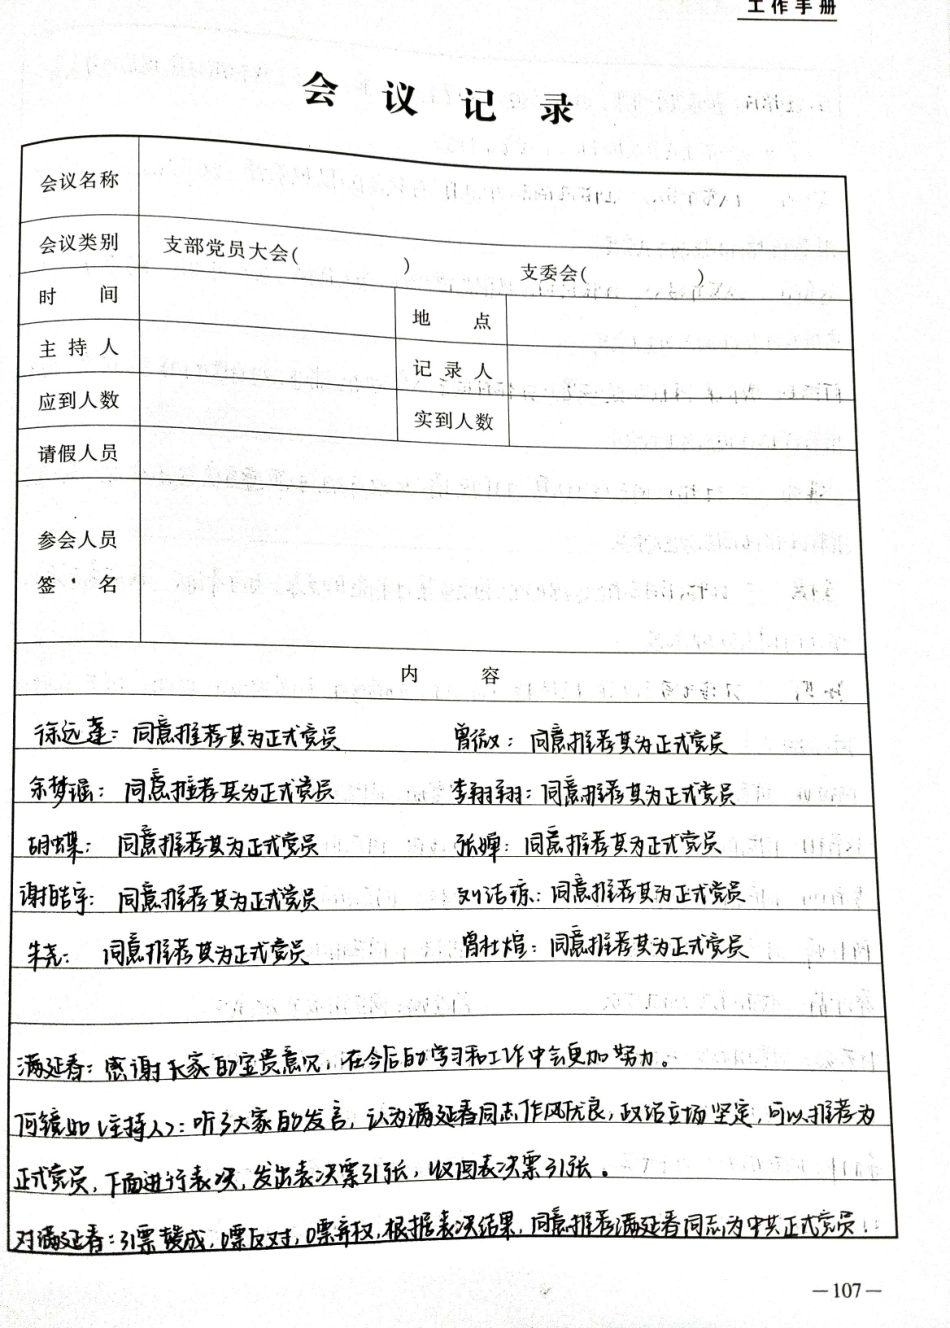 工作手册
会议记录
会议名称
会议类别 支部党员大会( ) 支委会( )
时 间 地 点
主持人 记录人
应到人数 实到人数
请假人员
参会人员
签 名
内 容
徐远莲：同意推荐其为正式党员 曾微：同意推荐其为正式党员
余梦瑶：同意推荐其为正式党员 李翔翔：同意推荐其为正式党员
胡蝶：同意推荐其为正式党员 张婵：同意推荐其为正式党员
谢皓宇：同意推荐其为正式党员 刘洁琼：同意推荐其为正式党员
朱尧：同意推荐其为正式党员 曾杜煊：同意推荐其为正式党员
满延春：感谢大家的宝贵意见，在今后的学习和工作中会更加努力。
何镜如（主持人）：听了大家的发言，认为满延春同志作风优良，政治立场坚定，可以推荐为
正式党员，下面进行表决，发出表决票31张，收回表决票31张。
对满延春：31票赞成，0票反对，0票弃权，根据表决结果，同意推荐满延春同志为中共正式党员
—107—